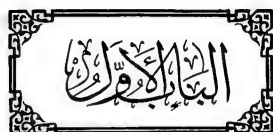 البَابُ الأَوَّلُ